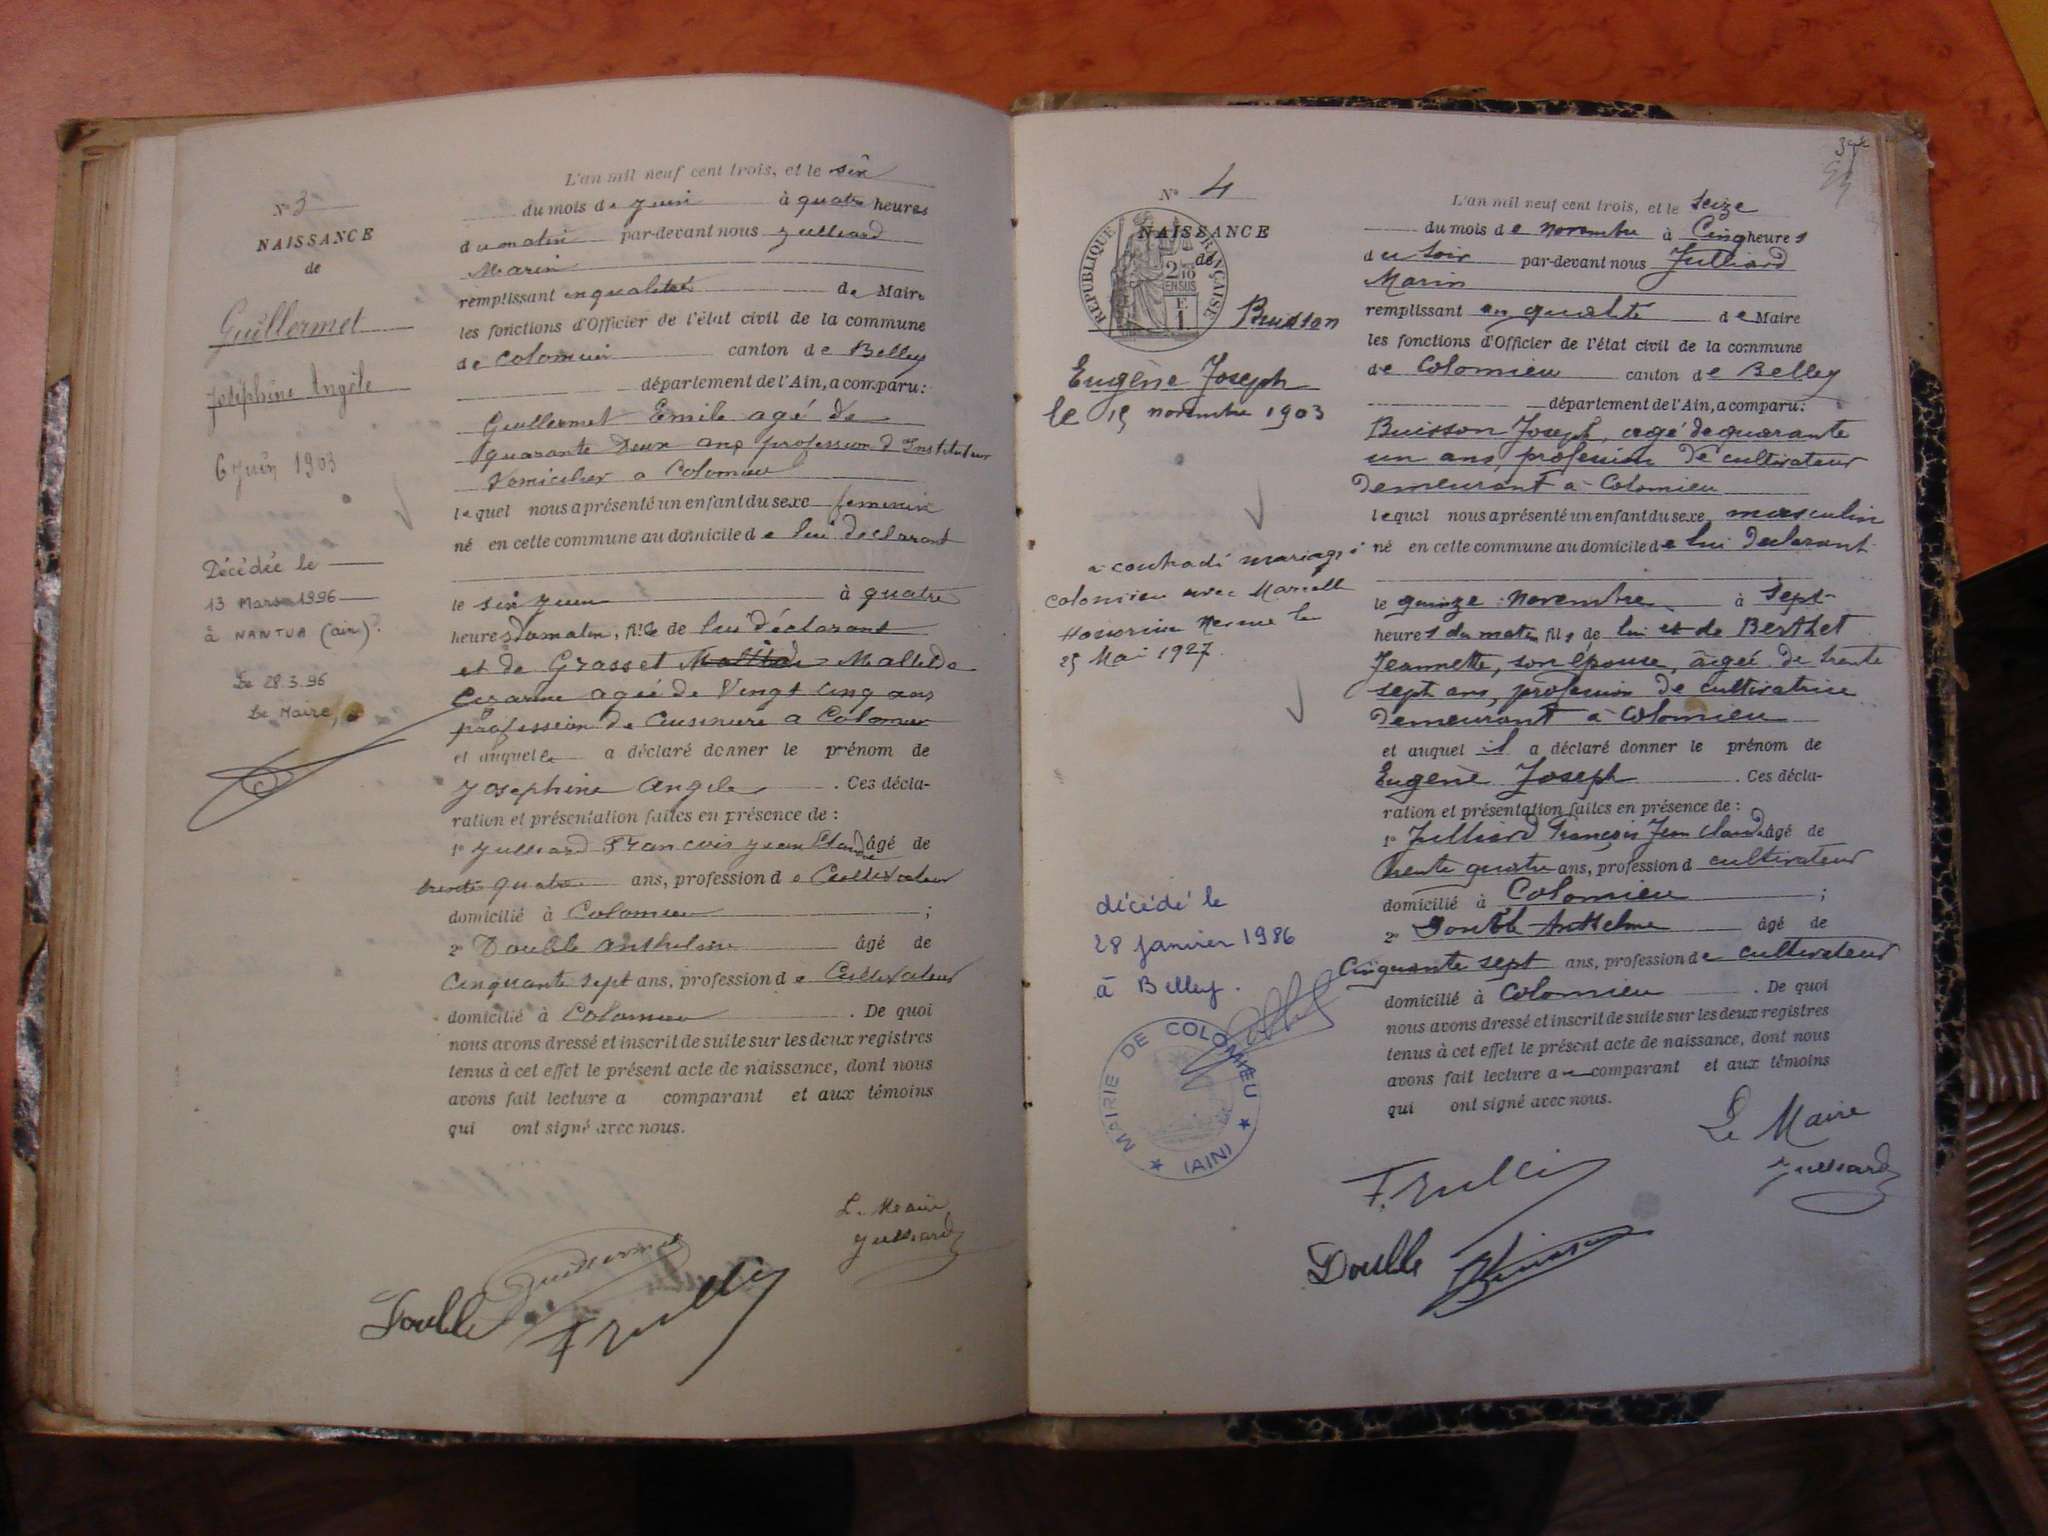 N° 3
NAISSANCE
de
Guillermet
Joséphine Angèle
6 Juin 1903
Décédée le
13 Mars 1996
à NANTUA (ain).
Le 28.3.96
Le Maire,
L'an mil neuf cent trois, et le six
du mois de Juin à quatre heures
du matin par-devant nous Julliard
Marin
remplissant en qualité de Maire
les fonctions d'Officier de l'état civil de la commune
de Colomieu canton de Belley
département de l'Ain, a comparu:
Guillermet Emile agé de
quarante deux ans profession d'Instituteur
Domicilier a Colomieu
lequel nous a présenté un enfant du sexe feminin
né en cette commune au domicile de lui declarant
le six Juin à quatre
heures du matin, fille de lui déclarant
et de Grasset Matilde
agée de Vingt cinq ans
profession de a Colomieu
et auquel a déclaré donner le prénom de
Josephine Angele. Ces décla-
ration et présentation faites en présence de :
1° Julliard Francois Jean Claude âgé de
trente quatre ans, profession de Cultivateur
domicilié à Colomieu ;
2° Double Anthelme âgé de
Cinquante sept ans, profession de Cultivateur
domicilié à Colomieu. De quoi
nous avons dressé et inscrit de suite sur les deux registres
tenus à cet effet le présent acte de naissance, dont nous
avons fait lecture a comparant et aux témoins
qui ont signé avec nous.
Le Maire
Julliard
Guillermet
Double F Julli
N° 4
NAISSANCE
de
RÉPUBLIQUE FRANÇAISE
2/10
EN SUS
Buisson
Eugène Joseph
le 15 novembre 1903
a contradé mariage à
Colomieu avec Marcelle
Honorine le
25 Mai 1927.
décédé le
28 janvier 1986
à Belley.
MAIRIE DE COLOMIEU ★ (AIN) ★
L'an mil neuf cent trois, et le seize
du mois de novembre à Cinq heures
du soir par-devant nous Julliard
Marin
remplissant en qualité de Maire
les fonctions d'Officier de l'état civil de la commune
de Colomieu canton de Belley
département de l'Ain, a comparu:
Buisson Joseph, agé de quarante
un ans, profession de cultivateur
demeurant à Colomieu
lequel nous a présenté un enfant du sexe masculin
né en cette commune au domicile de lui declarant
le quinze novembre à sept
heures du matin fils de lui et de Berthet
Jeannette, son épouse, âgée de trente
sept ans, profession de cultivatrice
demeurant à Colomieu
et auquel il a déclaré donner le prénom de
Eugène Joseph. Ces décla-
ration et présentation faites en présence de :
1° Julliard François Jean Claude âgé de
trente quatre ans, profession d cultivateur
domicilié à Colomieu ;
2° Double Anthelme âgé de
Cinquante sept ans, profession de cultivateur
domicilié à Colomieu. De quoi
nous avons dressé et inscrit de suite sur les deux registres
tenus à cet effet le présent acte de naissance, dont nous
avons fait lecture au comparant et aux témoins
qui ont signé avec nous.
Le Maire
Julliard
F. Julli
Double Buisson